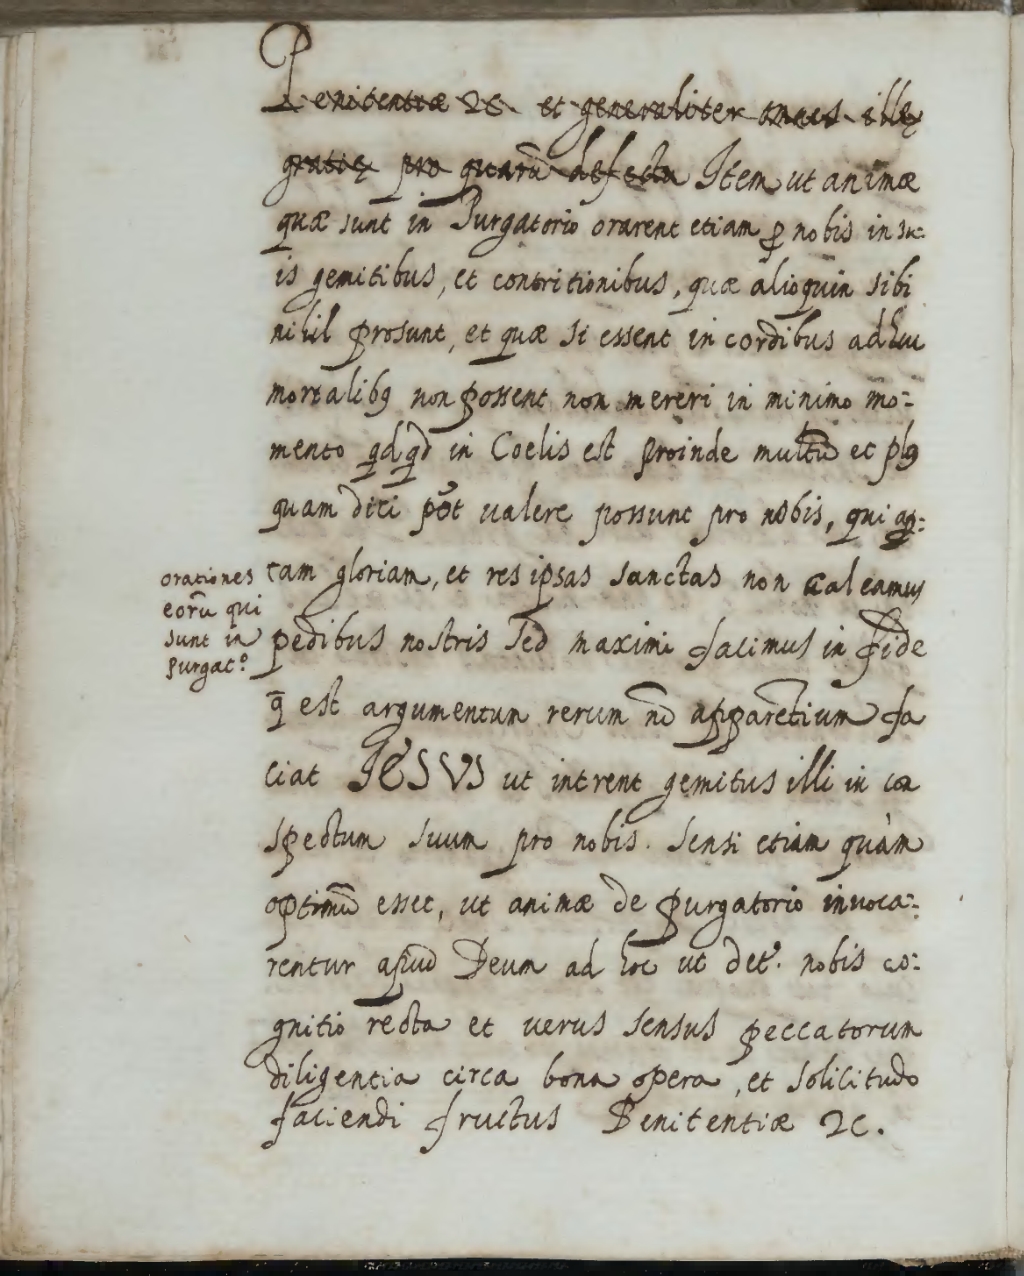 Penitentiæ &c. et generaliter omnes illę
gratię pro quarū defectu Item ut animæ
quæ sunt in Purgatorio orarent etiam ꝑ nobis in su:
is gemitibus, et contritionibus, quæ alioquin sibi
nihil prosunt, et quæ si essent in cordibus adhuc
mortalibꝰ non possent non mereri in minimo mo:
mento qdqd in Coelis est proinde multū et plꝰ
quam dici pōt valere possunt pro nobis, qui
tam gloriam, et res ipsas sanctas non caleamus
pedibus nostris sed maximi facimus in fide
q̄ est argumentum rerum nō apparētium fa
ciat JESVS ut intrent gemitus illi in con
spectum suum pro nobis. Sensi etiam quàm
optimū esset, ut animæ de purgatorio invoca:
rentur apud Deum ad hoc ut det. nobis co:
gnitio recta et uerus sensus peccatorum
diligentia circa bona opera, et solicitudo
faciendi fructus Penitentiæ &c.
orationes
eorū qui
sunt in
purgat.º